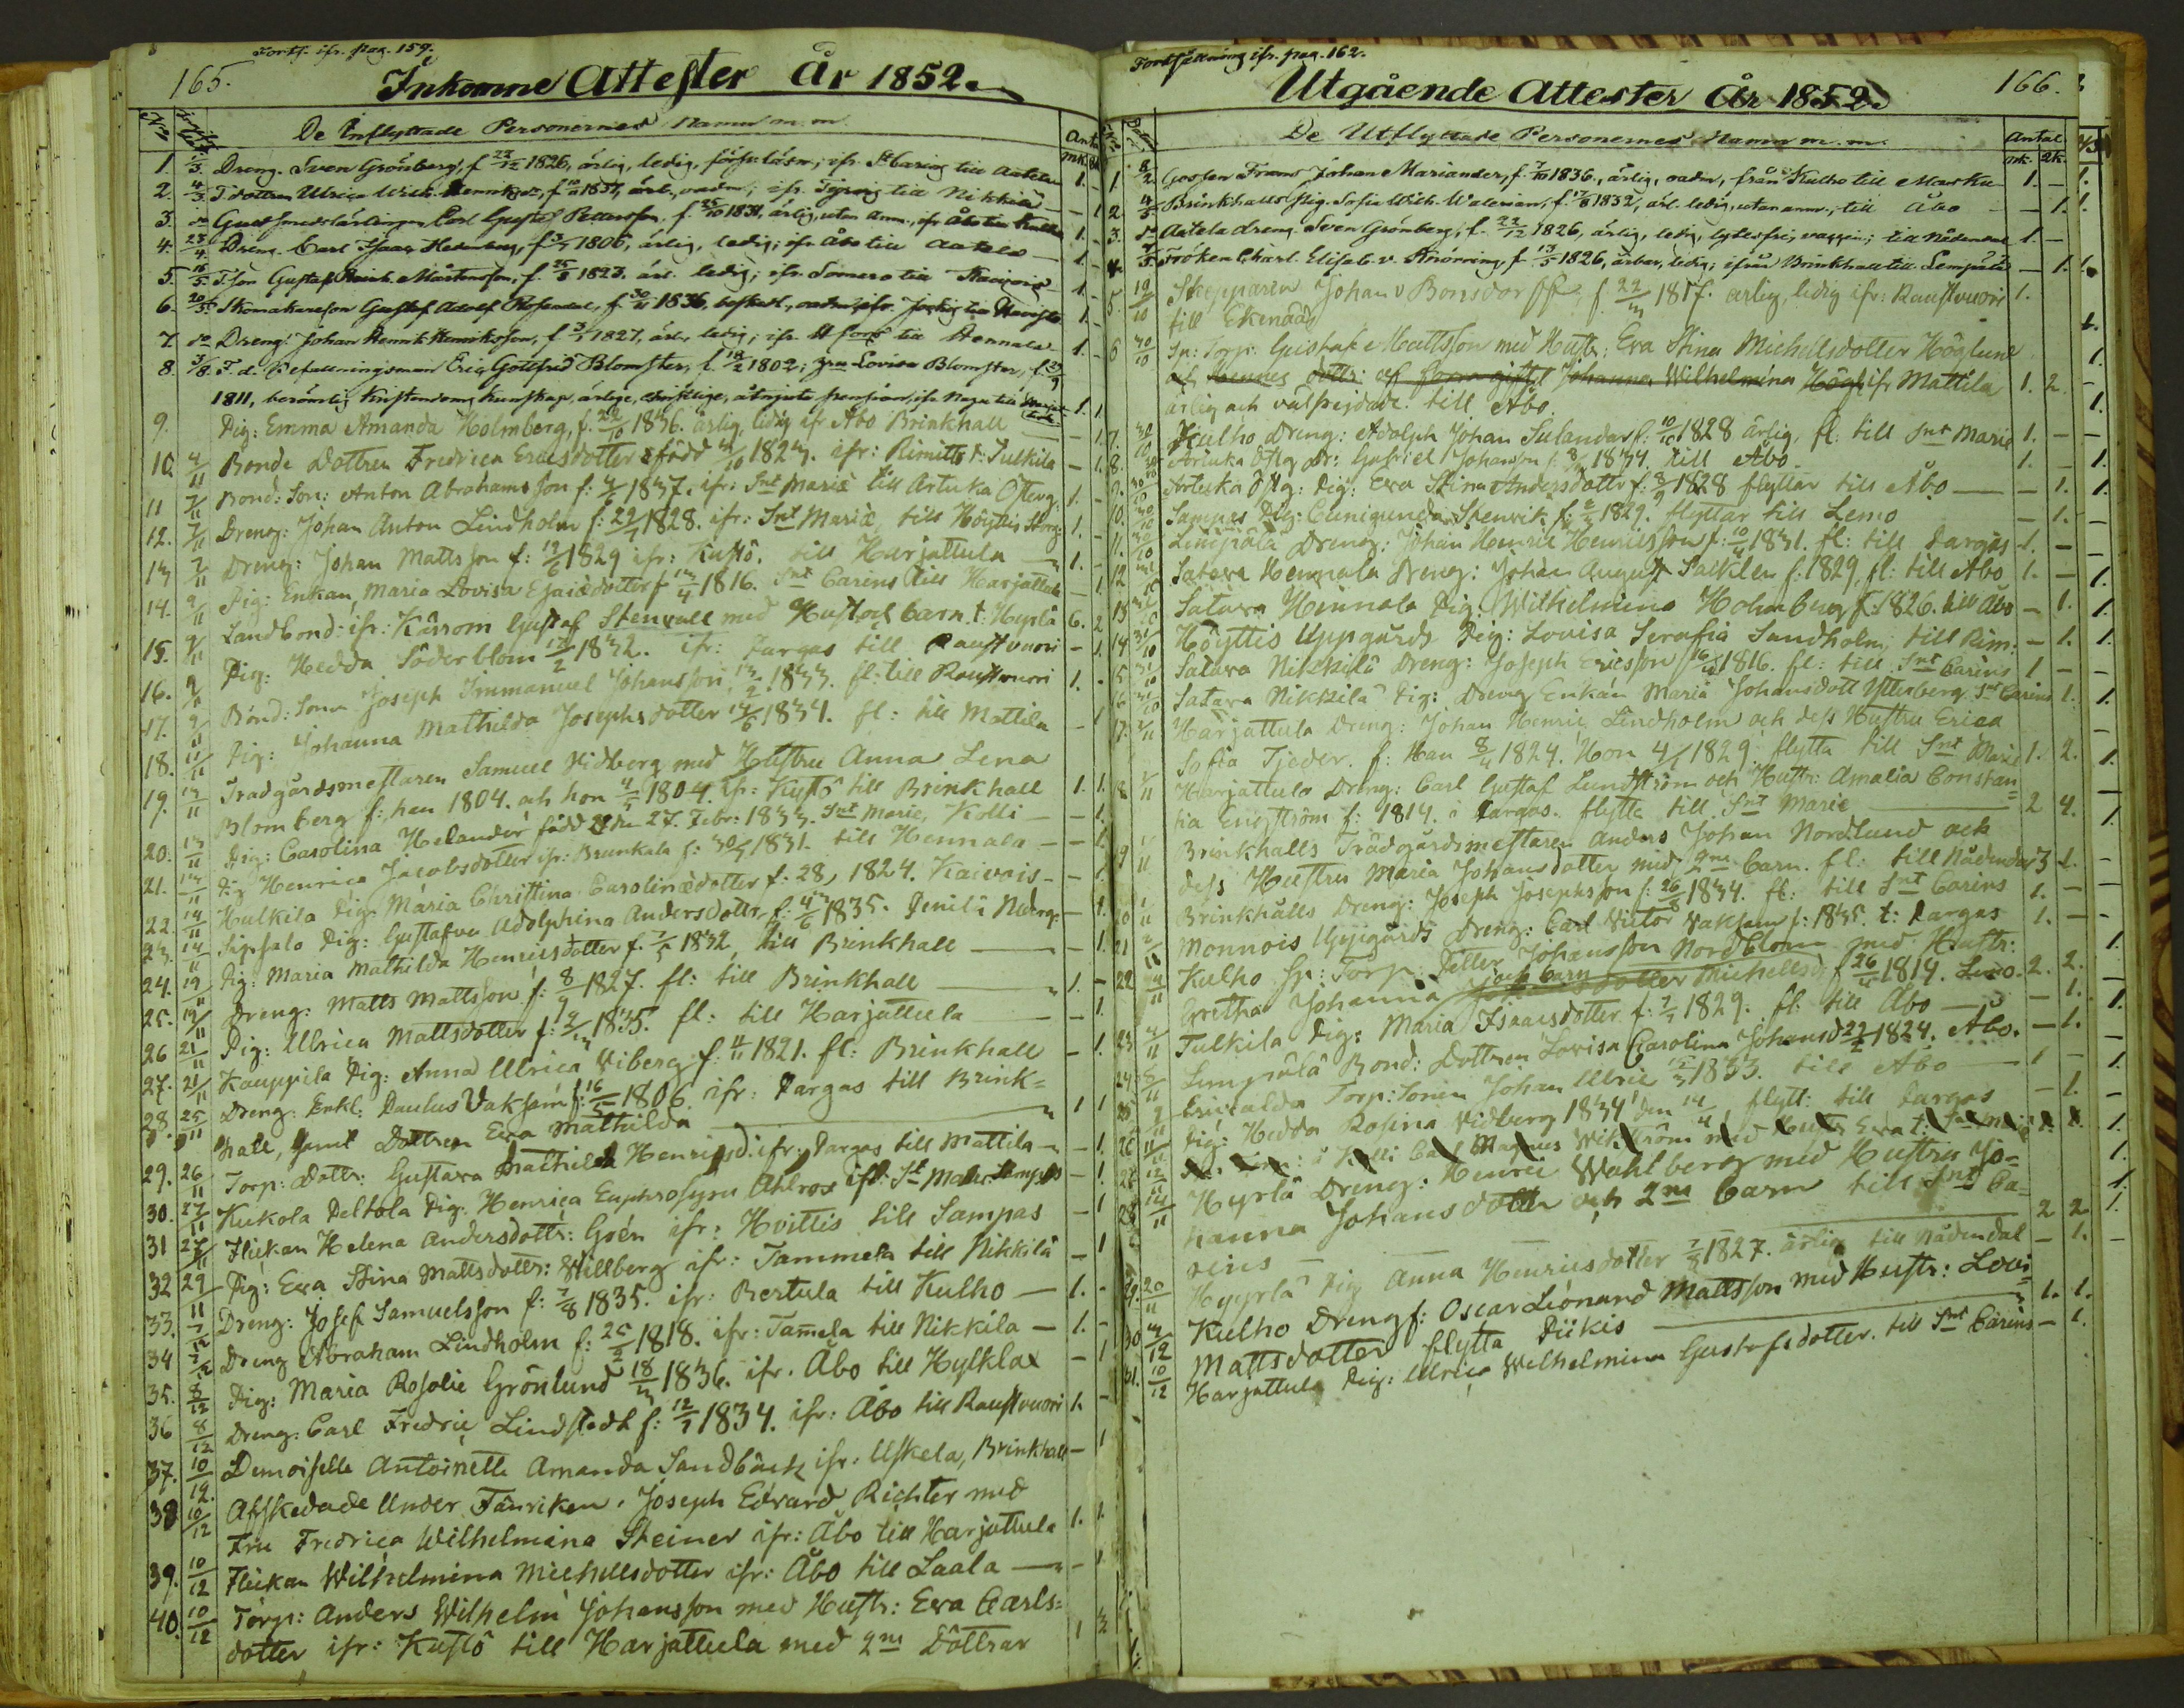 Forts. ifr. pag. 159.
165.
Inkomne Attester År 1852.
De Inflyttade Personernes Namn m.m.
1. Dreng. Sven Grönberg, f 22/12 1826, ärlig, ledig, ifr. St Carins till Aatela 1. -
2. 4/3 T. dottren Ulrica till Nikkilä
3. do Guldsmedslärlingen Carl Gustaf Pettersson, f. 25/10 1831, ärlig, utan anm., ifr. Åbo till Kulho 1. -
4. 23/4 Dreng. Carl Isaac Hedenberg, f 3/5 1806, ärlig, ledig; ifr Åbo till Aatela 1. -
5. T. Son Gustaf Henrik Mårtensson, f. 1823. ärl. ledig; ifr. Somero till 1. -
6. 20/5 Skomakareson Gustaf Adolf Rosendal, f. 30/11 1836, 1. -
7 do Dreng. Johan Henrik Henriksson, f 3/1 1827, ärl., ledig; ifr. H:fors till Hennala 1. -
8. 3/8. F. d. Befallningsman Eric Gottfrid Blomster, f. 18/2 1802; fru Lovisa Blomster, f. 27/9
1811, berömlig kristendoms kunskap, ärlige, ifr. Nagu till 1. 1.
9. Pig: Emma Amanda Holmberg, f. 22/10 1836. ärlig ledig ifr Åbo Brinkhall - 1
10. 4/11 Bonde Dottren Fredrica Ericsdotter född 4/10 1823. ifr: Rimitto t: Tulkila - 1.
11 7/11 Bond: Son: Anton Abrahamsson f: 4/6 1837. ifr: Snt Mariæ till Artuka Österg. 1. -
12. 7/11 Dreng: Johan Anton Lindholm f: 29/7 1828. ifr: Snt Mariæ, till Höyttis 1. -
13 7/11 Dreng: Johan Mattsson f: 12/6 1829 ifr: Kustö. till Harjattula 1. -
14. 9/11 Pig: Enkan, Maria Lovisa Esaiædotter f 13/4 1816. Snt Carins till Harjattula - 1.
Landbond: ifr: Kårrom Gustaf Stenvall med Hust och barn t: Heyrlä 6. 2
15. 9/11 Pig: Hedda Söderblom 13/2 1832. ifr: Pargas till Raustvuori - 1.
16. 9/11 Bond: Sonn Joseph Immanuel Johansson, 13/2 1833. fl: till Raustvuori 1. -
17. 9/11 Pig: Johanna Mathilda Josephsdotter 14/6 1834. fl: till Mattila - 1
18. 11/11 Trädgårdsmestaren Samuel Vidberg med Hustru Anna Lena
19. 13/11 Blomberg f: han 1804. och hon 4/5 1804. ifr: Kustö till Brinkhall 1. 1.
20. 13/11 Pig: Carolina Helander född den 27. Febr: 1833. Snt Mariæ, Kolli - 1.
21. 13/11 Pig Henrica Jacobsdotter ifr: Brunkala f: 30/5 1831. till Hennala - 1.
22. 14/11 Hulkila Pig: Maria Christina Carolinædotter f. 28, 1824. Kaivois - 1.
23. 14/11 Sipsalo Pig: Gustafva Adolphina Andersdottr f: 4/6 1835. Penilä Nederg: - 1.
24. 19/11 Pig: Maria Mathilda Henricsdotter f. 7/5 1832 till Brinkhall - 1.
25. 19/11 Dreng: Matts Mattsson f: 8/9 1827. fl: till Brinkhall 1. -
26 21/11 Pig: Ulrica Mattsdotter f: 9/3 1835. fl: till Harjattula - 1.
27. 21/11 Kauppila Pig: Anna Ulrica Viberg f: 4/11 1821. fl: Brinkhall - 1.
28. 25/11 Dreng: Enkl: Paulus Vaksam f: 16/5 1806. ifr: Pargas till Brink=
hall, samt Dottren Eva Mathilda 1 1
29. 26/11 Torp: Dottr: Gustava Mathilda Henricsd: ifr: Pargas till Mattila - 1.
30. 27/11 Kukola Peltola Pig: Henrica Euphrosyne Ahlros ifr. St Mariæ Sampas - 1.
31 27/11 Flickan Helena Andersdottr: Grén ifr: Hvittis till Sampas - 1
32 29/11 Pig: Eva Stina Mattsdottr: Willberg ifr: Tammela till Nikkilä - 1
33. 7/12 Dreng: Josef Samuelsson f: 7/8 1835. ifr: Bertula till Kulho 1. -
34 7/12 Dreng Abraham Lindholm f: 25/2 1818. ifr: Tamela till Nikkila 1. -
35. 8/12 Pig: Maria Rosolie Grönlund 18/3 1836. ifr. Åbo till Hylklax - 1
36 8/12 Dreng: Carl Fredric Lindstedt f: 12/7 1834. ifr: Åbo till Raustvuori 1. -
37. 10/12. Demoiselle Antoinette Amanda Sandbäck ifr: Uskela, Brinkhall - 1
38 10/12 Afskedade Under Fänriken. Joseph Edvard Richter med
Fru Fredrica Wilhelmina Steiner ifr: Åbo till Harjattula 1. 1.
39. 10/12 Flickan Wilhelmina Michellsdotter ifr: Åbo till Laala - 1
40. 10/12 Torp: Anders Wilhelm Johansson med Hustr: Eva Carls=
dotter ifr: Kustö till Harjattula med 2ne Döttrar 1 3
Fortsättning ifr. pag. 162.
166.
Utgående Attester År 1852.
De Utflyttade Personernes Namn m.m. Antal
mk. qk.
1. 8/2. Gossen Frans Johan Mariander, f. 7/10 1836., ärlig, från Kulho till Masku 1. -
2. 4/5 Brinkhalls Pig. Sofia Wilh. Walenian, f. 17/8 1832, ärl. ledig, utan anm.; till Åbo - 1.
3. do Aatela dreng. Sven Grönberg, f. 22/12 1826, ärlig, ledig, lytesfri, vaccin; till Nådendal 1. -
4. Fröken Charl. Elisab. v. Knorring, f 13/5 1826, ärbar, ledig; ifrån Brinkhall till Lempälä - 1.
5. 19/10 Skepparen Johan v Bonsdorff f. 22/3 1817. ärlig, ledig ifr: Raustvuori 1.
till Ekenääs
6 30/10 Sp: Torp: Gustaf Mattsson med Hustr: Eva Stina Michellsdotter Höglund
och Hennes dottr: af förra giftet Johanna Wilhelmina Högl ifr Mattila 1. 2.
ärlig och välfrejdade. till Åbo.
7. 30/10 Kulho Dreng: Adolph Johan Sulander f: 10/10 1828 ärlig, fl: till Snt Mariæ 1. -
8. Artuka Östg Dr: Gabriel Johansson 1834. till Åbo 1. -
9. 30/10 Artuka Östg: Pig: Eva Stina Andersdottr f: 8/9 1828 flyttar till Åbo - 1.
10. 30/10 Sampas Pig: Cunigunda Stenvik f: 1829. flyttar till Lemo - 1.
11. 30/10 Lempälä Dreng: Johan Henric Henricsson f: 10/4 1831. fl: till Pargas 1. -
12 Satava Hennala Dreng: Johan August Sacklen f: 1829, fl: till Åbo 1. -
13 Satava Hennala Pig: Wilhelmina Holmberg f: 1826. till Åbo - 1.
14 31/10 Höyttis Uppgårds Pig: Lovisa Serafia Sandholm, till Rim: - 1.
15 Satava Nikkilä Dreng: Joseph Ericsson 1816. fl: till Snt Carins 1 -
16 Satava Nikkilä Pig: Dreng Enkan Maria Johansdott Ytterberg Snt Carins 1.
17. 2/11 Harjattula Dreng: Johan Henric Lindholm och dess Hustru Erica
Sofia Tjeder. f: Han 8/4 1824. Hon 4/1 1829 flytta till Snt Mariæ 1. 2.
18 2/11 Harjattula Dreng: Carl Gustaf Lundström och Hustr: Amalia Constan=
tia Engström f: 1814. i Pargas. flytta till Snt Mariæ 2 4.
19 Brinkhalls Trädgårdsmestaren Anders Johan Nordlund och
dess Hustru Maria Johansdotter med 2ne barn. fl: till Nådendal 3 1.
20 Brinkhalls Dreng: Joseph Josephsson f: 26/8 1834. fl: till Snt Carins 1. -
21 2/11 Monnois Uppgårds Dreng: Carl Victor Vaksam f: 1835. t: Pargas 1. -
22 4/11 Kulho Sp: Torp: Petter Johansson Nordblom med Hustr:
Gretha Johanna och barn Michellsd: f 26/4 1819. Lemo. 2. 2.
23 4/11 Tulkila Pig: Maria Isaacsdotter f: 7/7 1829. fl: till Åbo - 1.
24 5/11 Lempälä Bond: Dottren Lovisa Carolina Johansd 29/2 1824. Åbo. - 1.
Torp: Sonen Johan Ulric 15/3 1833. till Åbo 1 -
Pig: Hedda Rosina Vidberg 1834 den 14/4 flytt: till Pargas - 1.
26 11/11 i Kolli Carl Magnus Wikström med Hustr Eva
27 12/11 Heyrlä Dreng: Henric Wahlberg med Hustru Jo=
hanna Johansdotter och 2ne barn till Snt Ca=
rins 2 2
29. 20/11 Heyrlä Pig Anna Henricsdotter 7/8 1827. ärlig till Nådendal - 1.
30 4/12 Kulho Dreng f: Oscar Leonard Mattsson med Hustr: Lovi=
Mattsdotter flytta Piikis 1. 1.
31. 10/12 Harjattula Pig: Ulrica Wilhelmina Gustafsdotter. till Snt Carins - 1.